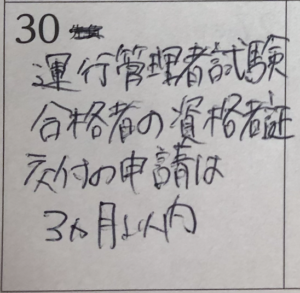 30
運行管理者試験
合格者の資格者証
交付の申請は
3ヵ月以内